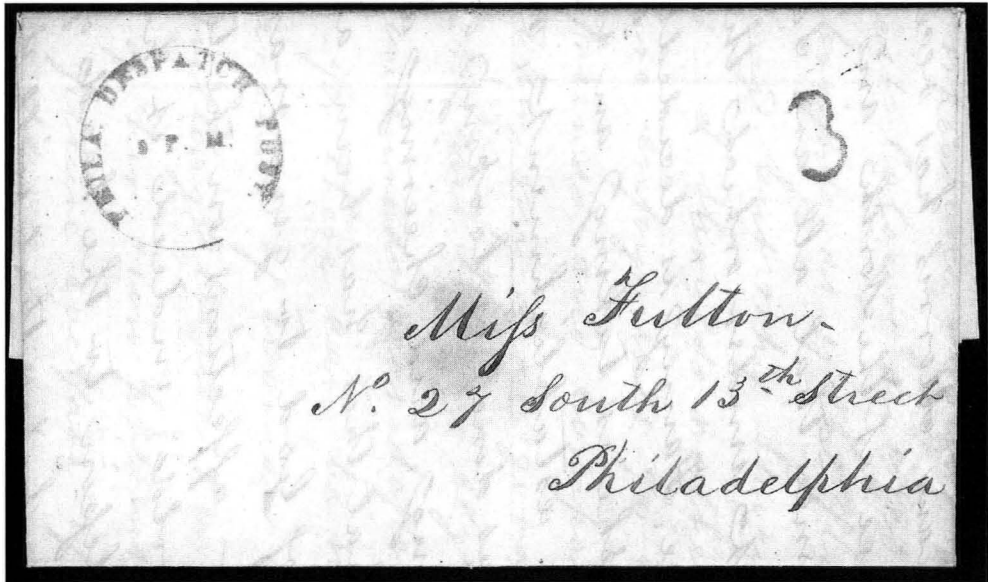 PHILA DESPATCH POST.
P. M.
3
Miſs Fulton-
Nº. 27 South 13th Street
Philadelphia